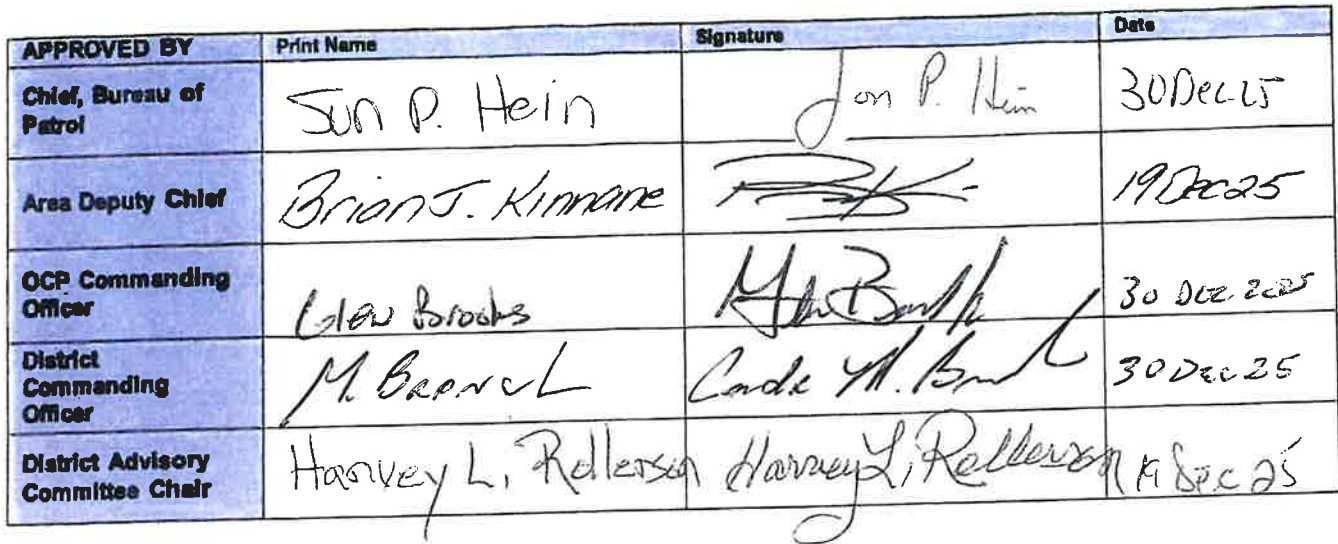 APPROVED BY Print Name Signature Date
Chief, Bureau of
Patrol
Jon P. Hein Jon P. Hein 30Dec25
Area Deputy Chief Brian J. Kinnane 19Dec25
OCP Commanding
Officer
Glen Brooks 30 DEC 2025
District
Commanding
Officer
M. 30Dec25
District Advisory
Committee Chair
Harvey L. Rellerson Harvey L. Rellerson 19 Dec 25